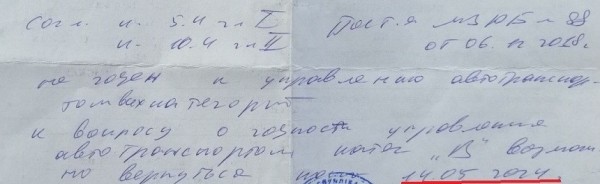 Согл. п. 5.4 гл I Пост. МЗ РБ № 88
п. 10.4 гл II от 06. 2018г.
не годен к управлению автотранспор-
том всех категорий
к вопросу о годности управления
автотранспортом катег "В" возмож-
но вернуться 14.05 2024.